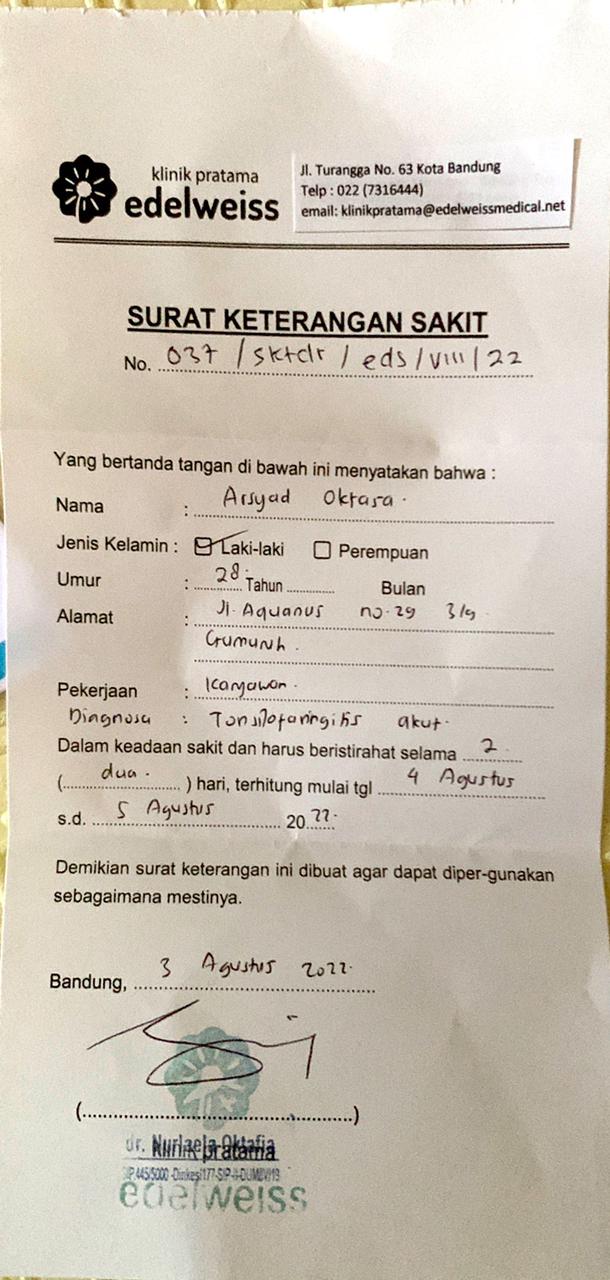 klinik pratama
edelweiss
Jl. Turangga No. 63 Kota Bandung
Telp : 022 (7316444)
email: klinikpratama@edelweissmedical.net
SURAT KETERANGAN SAKIT
No. 037 / sktdr / eds / VIII / 22
Yang bertanda tangan di bawah ini menyatakan bahwa :
Nama : Arsyad Oktara.
Jenis Kelamin : Laki-laki Perempuan
Umur : 28 Tahun Bulan
Alamat : Jl. Aquarius no. 29 3/9
Pekerjaan : Karyawan.
Diagnosa : Tonsilofaringitis akut.
Dalam keadaan sakit dan harus beristirahat selama 2
( dua. ) hari, terhitung mulai tgl 4 Agustus
s.d. 5 Agustus 2022.
Demikian surat keterangan ini dibuat agar dapat diper-gunakan
sebagaimana mestinya.
Bandung, 3 Agustus 2022.
(....................)
dr. Nurlaela Oktafia
pratama
edelweiss